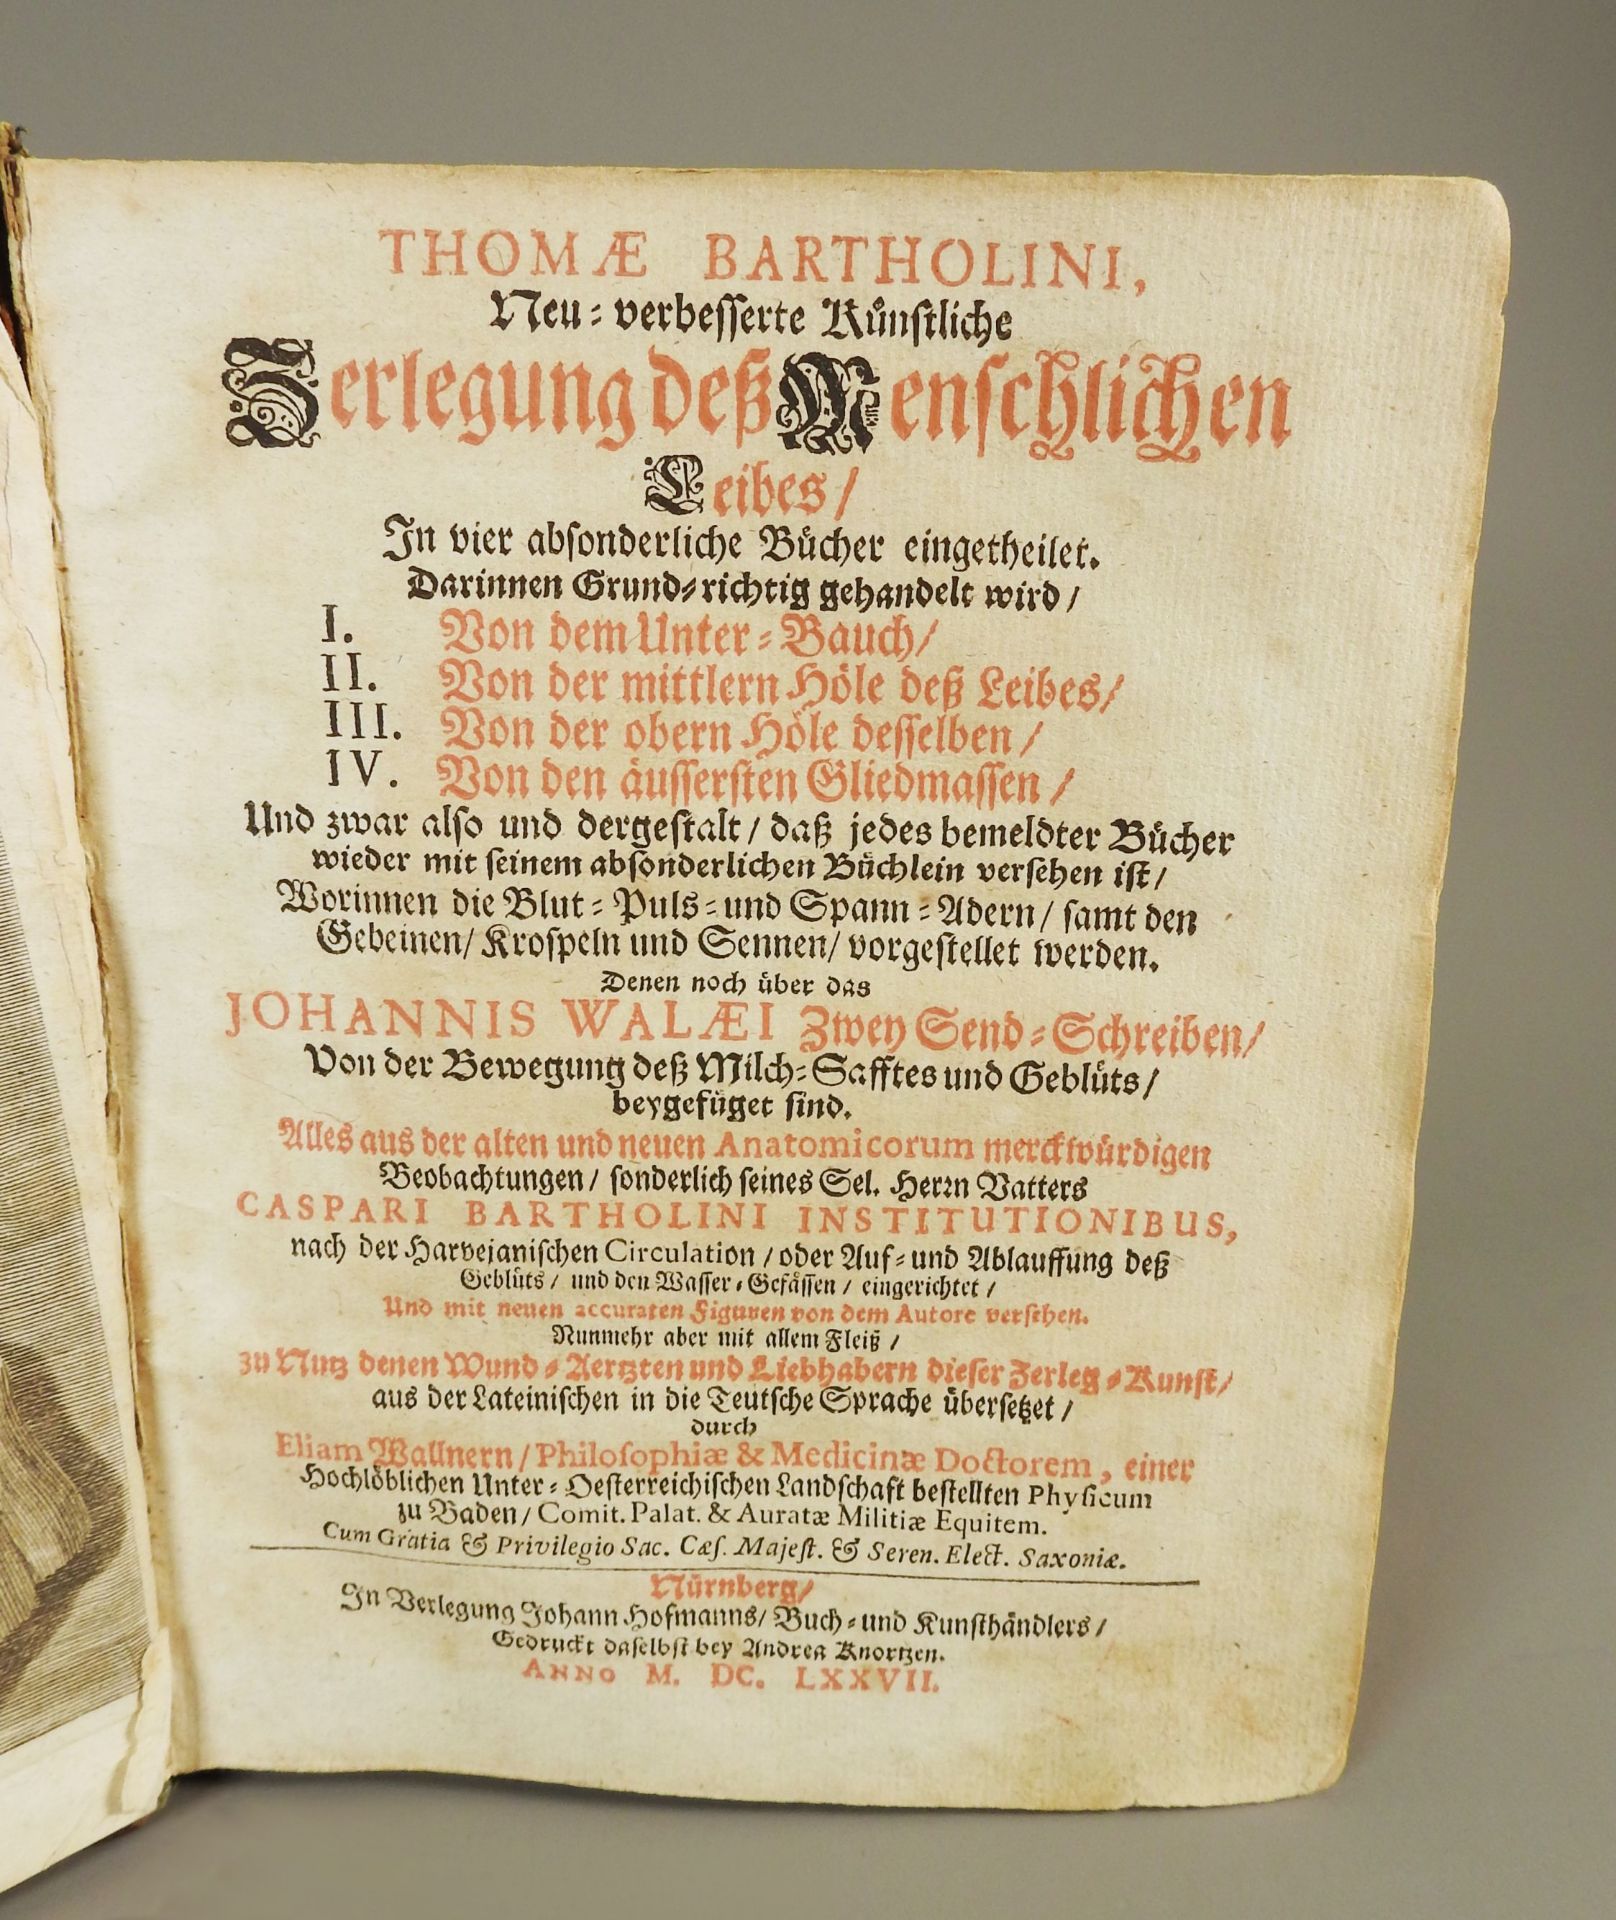 THOMÆ BARTHOLINI,
Neu-verbesserte Kuͤnstliche
Zerlegung deß Menschlichen
Leibes/
In vier absonderliche Buͤcher eingetheilet.
Darinnen Grund-richtig gehandelt wird/
I. Von dem Unter-Bauch/
II. Von der mittlern Höle deß Leibes/
III. Von der obern Höle desselben/
IV. Von den äussersten Gliedmassen/
Und zwar also und dergestalt/ daß jedes bemeldter Buͤcher
wieder mit seinem absonderlichen Buͤchlein versehen ist/
Worinnen die Blut-Puls-und Spann-Adern/ samt den
Gebeinen/ Krospeln und Sennen/ vorgestellet werden.
Denen noch uͤber das
JOHANNIS WALÆI Zwey Send-Schreiben/
Von der Bewegung deß Milch-Safftes und Gebluͤts/
beygefuͤget sind.
Alles aus der alten und neuen Anatomicorum merckwürdigen
Beobachtungen/ sonderlich seines Sel. Herrn Vatters
CASPARI BARTHOLINI INSTITUTIONIBUS,
nach der Harveianischen Circulation/ oder Auf-und Ablauffung deß
Gebluͤts/ und den Wasser-Gefaͤssen/ eingerichtet/
Und mit neuen accuraten Figuren von dem Autore versehen.
Nunmehr aber mit allem Fleiß/
zu Nutz denen Wund-Aertzten und Liebhabern dieser Zerleg-Kunst/
aus der Lateinischen in die Teutsche Sprache uͤbersetzet/
durch
Eliam Wallnern/ Philosophiæ & Medicinæ Doctorem, einer
Hochlöblichen Unter-Oesterreichischen Landschaft bestellten Physicum
zu Baden/ Comit. Palat. & Auratæ Militiæ Equitem.
Cum Gratia & Privilegio Sac. Cæs. Majest. & Seren. Elect. Saxoniæ.
Nürnberg/
In Verlegung Johann Hofmanns/ Buch-und Kunsthändlers/
Gedruckt daselbst bey Andrea Knortzen.
ANNO M. DC. LXXVII.